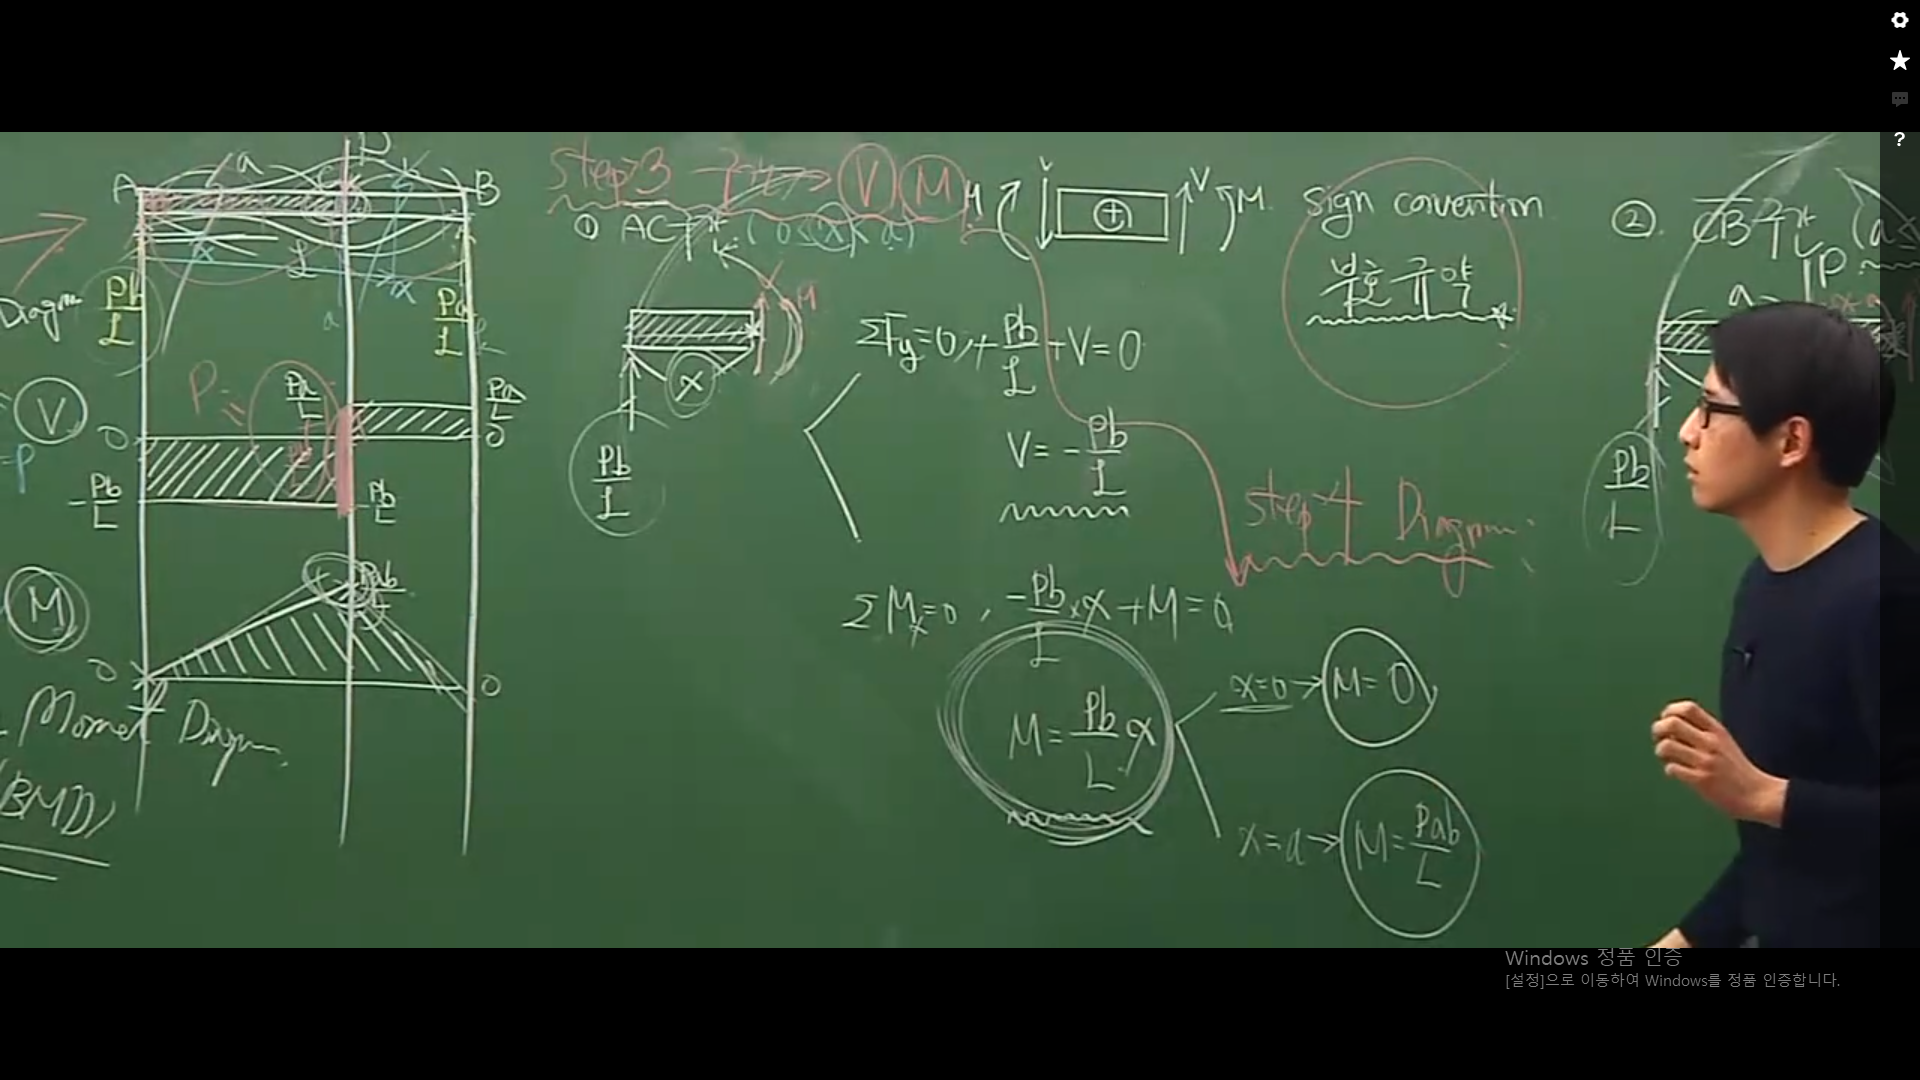 A
a
C
P
B
x
L
x
a
Diagram
Pb/L
Pa/L
V
P=
Pa/L
Pa/L
0
0
=P
-Pb/L
-Pb/L
M
Pab/L
0
0
Moment Diagram
(BMD)
step3 구간 → V M
① AC구간 (0≤x<a)
M V ⊕ V M
sign convention
부호규약
M
x
Pb/L
ΣFy=0, +Pb/L+V=0
V=-Pb/L
step4 Diagram
ΣMx=0, -Pb/L×x+M=0
M=Pb/L x
x=0→M=0
x=a→M=Pab/L
②. CB구간 (a≤
P
a
Pb/L
Windows 정품 인증
[설정]으로 이동하여 Windows를 정품 인증합니다.
?